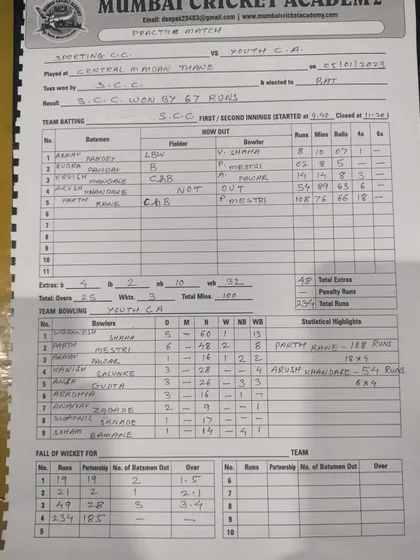 MUMBAI CRICKET ACADEMY
Email: deepak23483@gmail.com | www.mumbaicricketacademy.com
PRACTICE MATCH
SPORTING C.C. VS YOUTH C.A.
Played at CENTRAL MAIDAN THANE on 05/01/2023
Toss won by S.C.C. & elected to BAT
Result S.C.C. WON BY 67 RUNS
TEAM BATTING S.C.C FIRST / SECOND INNINGS (STARTED at 9.40 Closed at 11.20)
No. Batsmen HOW OUT Runs Mins Balls 4s 6s
Fielder Bowler
1 ARNAV PANDEY LBW V. SHAHA 8 10 07 1 -
2 RUDRA PANDAV B P. MESTRI 02 8 5 - -
3 URVISH MANGALE C&B A. PAWAR 14 14 8 3 -
4 ARUSH KHANDARE NOT OUT 54 89 63 6 -
5 PARTH RANE C&B P MESTRI 108 76 66 18 -
6
7
8
9
10
11
Extras: b 4 lb 2 nb 10 wb 32 48 Total Extras
- Penalty Runs
Total: Overs 25 Wkts. 3 Total Mins. 100 234 Total Runs
TEAM BOWLING YOUTH C A
No. Bowlers O M R W NB WB Statistical Highlights
1 SHAHA 5 - 60 1 13
2 PARTH MESTRI 6 - 48 2 8 PARTH RANE - 108 RUNS
3 ARNAV PAWAR 1 - 16 1 2 2 18 x 4
4 SALUNKE 3 - 28 - - 4 ARUSH KHANDARE - 54 RUNS
5 ANSH GUPTA 3 - 26 - 3 3 6 x 4
6 ARADHYA 3 - 16 - 1 -
7 ZAGADE 2 - 9 - - 1
8 SWAPNIL 1 - 17 - -
9 SOHAM BAMANE 1 - 14 - 4 1
FALL OF WICKET FOR TEAM
No. Runs Partnership No. of Batsmen Out Over No. Runs Partnership No. of Batsmen Out Over
1 19 19 2 1.5 6
2 21 2 1 2.1 7
3 49 28 3 3.4 8
4 234 185 - - 9
5 10